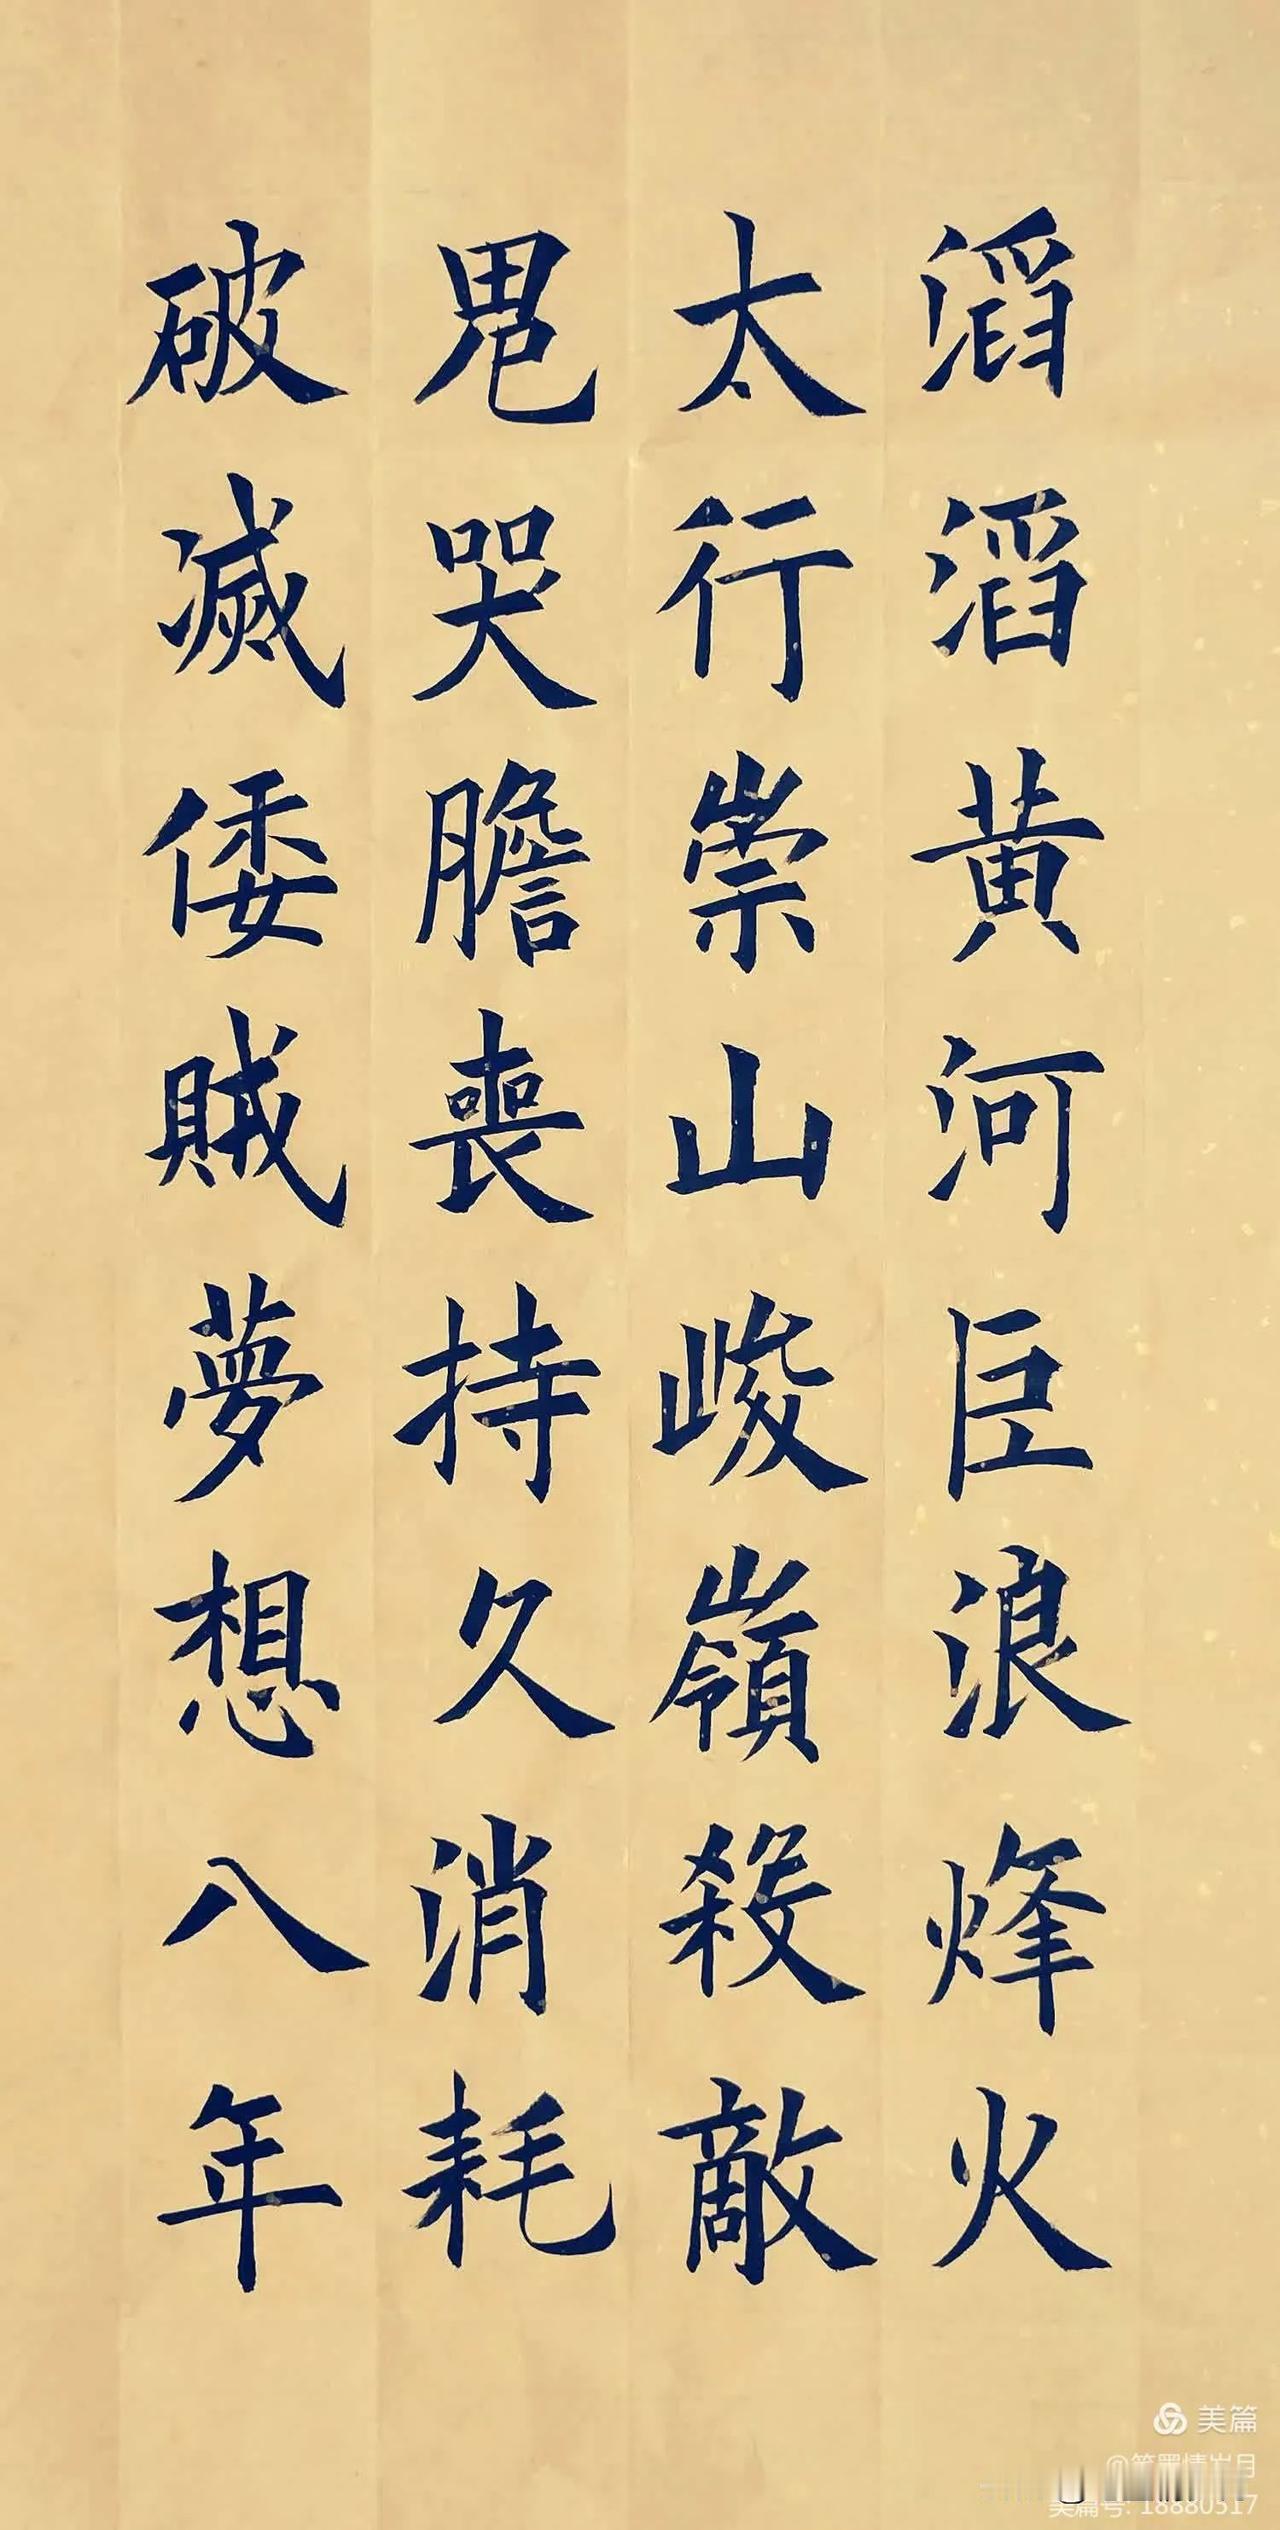 滔滔黄河巨浪烽火
太行崇山峻嶺殺敵
鬼哭膽喪持久消耗
破滅倭賊夢想八年
美篇
美篇号: 18880517